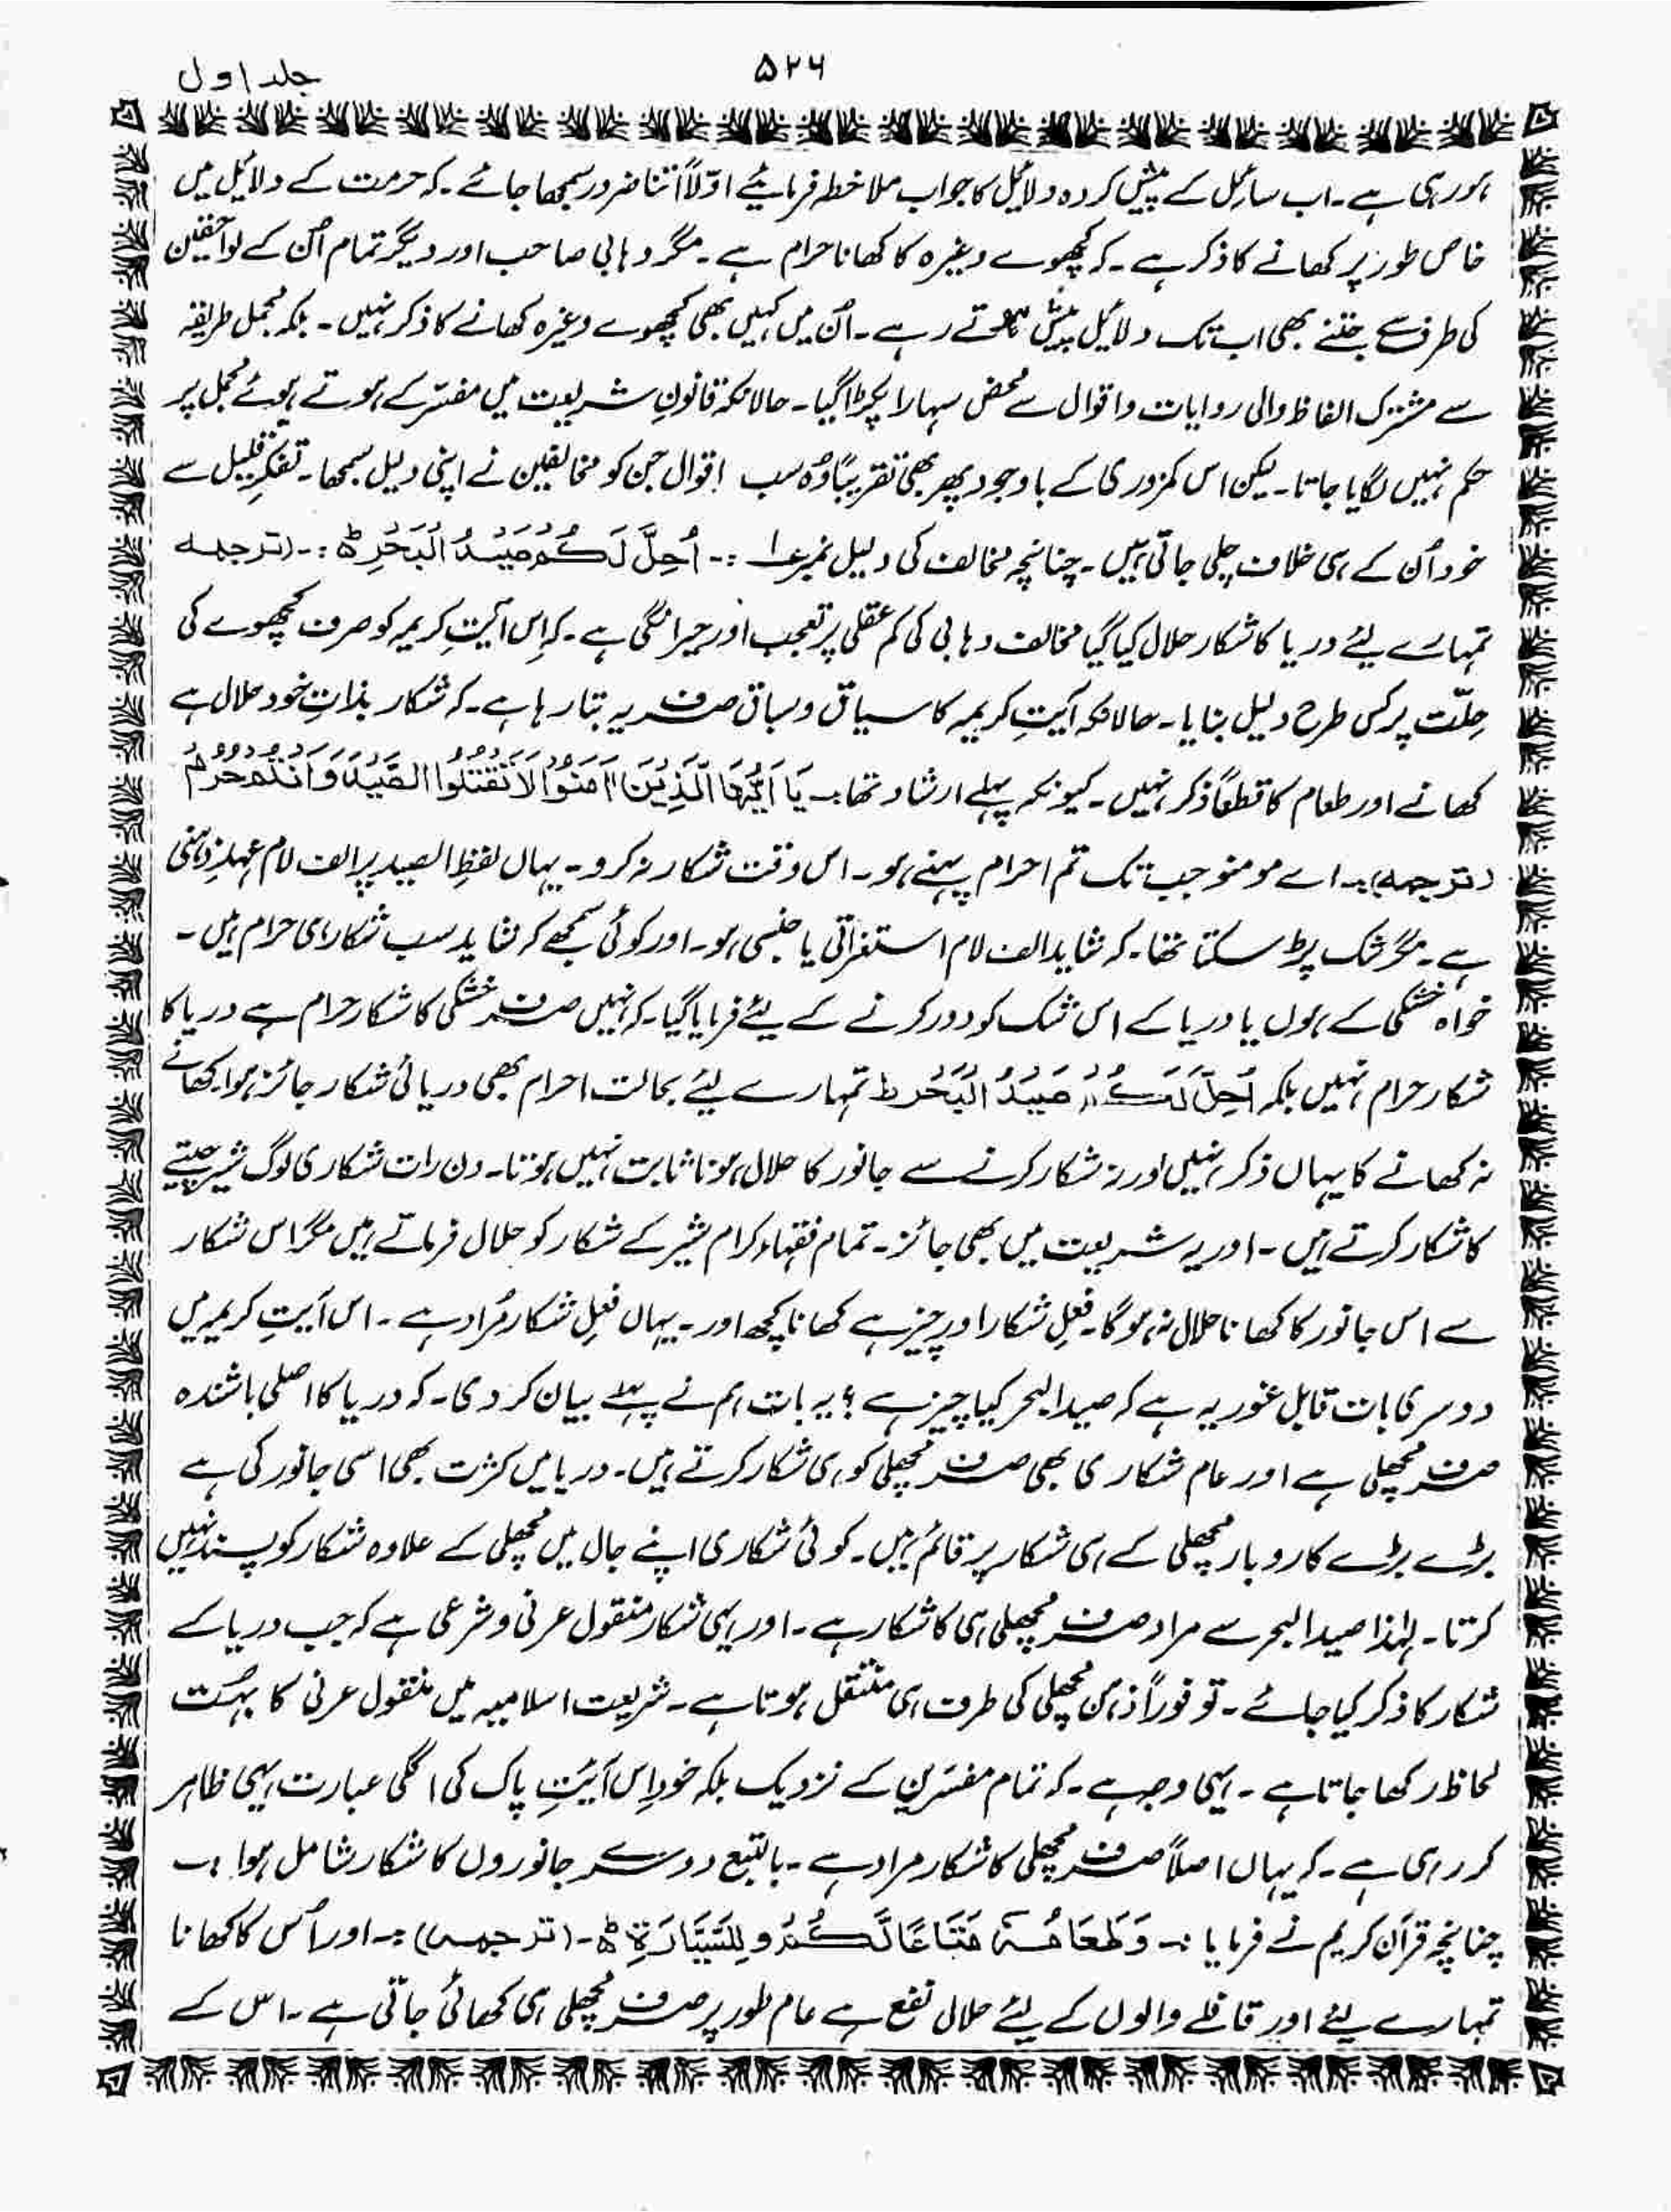 جلد اول
۵۲۶
ہو رہی ہے۔ اب سائل کے پیش کردہ دلائل کا جواب ملاحظہ فرمائیے اوّلاً اتنا ضرور سمجھا جائے۔ کہ حرمت کے دلائل میں
خاص طور پر کھانے کا ذکر ہے۔ کہ کچھوے وغیرہ کا کھانا حرام ہے۔ مگر وہابی صاحب اور دیگر تمام اُن کے لواحقین
کی طرف سے جتنے بھی اب تک دلائل پیش ہوتے رہے۔ اُن میں کہیں بھی کچھوے وغیرہ کھانے کا ذکر نہیں۔ بلکہ مجمل طریقہ
سے مشترک الفاظ والی روایات و اقوال سے محض سہارا پکڑا گیا۔ حالانکہ قانونِ شریعت میں مفسّر کے ہوتے ہوئے مجمل پر
حکم نہیں لگایا جاتا۔ لیکن اس کمزوری کے باوجود پھر بھی تقریباً وُہ سب اقوال جن کو مخالفین نے اپنی دلیل سمجھا۔ تفکرِ قلیل سے
خود اُن کے ہی خلاف چلی جاتی ہیں۔ چنانچہ مخالف کی دلیل نمبر ۱ :- اُحِلَّ لَكُمْ صَيْدُ الْبَحْرِ ط :- (ترجمہ
تمہارے لیئے دریا کا شکار حلال کیا گیا مخالف وہابی کی کم عقلی پر تعجب اور حیرانگی ہے۔ کہ اِس آیتِ کریمہ کو صرف کچھوے کی
حِلّت پر کس طرح دلیل بنایا۔ حالانکہ آیتِ کریمہ کا سیاق و سباق صرف یہ بتا رہا ہے۔ کہ شکار بذاتِ خود حلال ہے
کھانے اور طعام کا قطعاً ذکر نہیں۔ کیونکہ پہلے ارشاد تھا :- يَا اَيُّهَا الَّذِيْنَ اٰمَنُوْا لَا تَقْتُلُوا الصَّيْدَ وَاَنْتُمْ حُرُمٌ
(ترجمہ) :- اے مومنو جب تک تم احرام پہنے ہو۔ اس وقت شکار نہ کرو۔ یہاں لفظِ الصید پر الف لام عہدِ ذہنی
ہے۔ مگر شک پڑ سکتا تھا۔ کہ شاید الف لام استغراقی یا جنسی ہو۔ اور کوئی سمجھے کہ شاید سب شکار ہی حرام ہیں۔
خواہ خشکی کے ہوں یا دریا کے اس شک کو دور کرنے کے لیئے فرمایا گیا۔ کہ نہیں صرف خشکی کا شکار حرام ہے دریا کا
شکار حرام نہیں بلکہ اُحِلَّ لَكُمْ صَيْدُ الْبَحْرِ ط تمہارے لیئے بحالت احرام بھی دریائی شکار جائز ہوا۔ کھانے
نہ کھانے کا یہاں ذکر نہیں اور نہ شکار کرنے سے جانور کا حلال ہونا ثابت نہیں ہوتا۔ دن رات شکاری لوگ شیر چیتے
کا شکار کرتے ہیں۔ اور یہ شریعت میں بھی جائز۔ تمام فقہاء کرام شیر کے شکار کو حلال فرماتے ہیں مگر اس شکار
سے اس جانور کا کھانا حلال نہ ہو گا۔ فعلِ شکار اور چیز ہے کھانا کچھ اور۔ یہاں فعلِ شکار مُراد ہے۔ اس آیتِ کریمہ میں
دوسری بات قابل غور یہ ہے کہ صید البحر کیا چیز ہے؟ یہ بات ہم نے پہلے بیان کر دی۔ کہ دریا کا اصلی باشندہ
صرف مچھلی ہے اور عام شکاری بھی صرف مچھلی کو ہی شکار کرتے ہیں۔ دریا میں کثرت بھی اسی جانور کی ہے
بڑے بڑے کاروبار مچھلی کے ہی شکار پر قائم ہیں۔ کوئی شکاری اپنے جال میں مچھلی کے علاوہ شکار کو پسند نہیں
کرتا۔ لہٰذا صید البحر سے مراد صرف مچھلی ہی کا شکار ہے۔ اور یہی شکار منقول عرفی و شرعی ہے کہ جب دریا کے
شکار کا ذکر کیا جائے۔ تو فوراً ذہن مچھلی کی طرف ہی منتقل ہوتا ہے۔ شریعت اسلامیہ میں منقول عرفی کا بہت
لحاظ رکھا جاتا ہے۔ یہی وجہ ہے۔ کہ تمام مفسّرین کے نزدیک بلکہ خود اِس آیتِ پاک کی اگلی عبارت یہی ظاہر
کر رہی ہے۔ کہ یہاں اصلاً صرف مچھلی کا شکار مراد ہے۔ بالتبع دوسرے جانوروں کا شکار شامل ہوا۔
چنانچہ قرآن کریم نے فرمایا :- وَطَعَامُهٗ مَتَاعًا لَّكُمْ وَلِلسَّيَّارَةِ ط :- (ترجمہ) :- اور اُس کا کھانا
تمہارے لیئے اور قافلے والوں کے لیئے حلال نفع ہے عام طور پر صرف مچھلی ہی کھائی جاتی ہے۔ اس کے